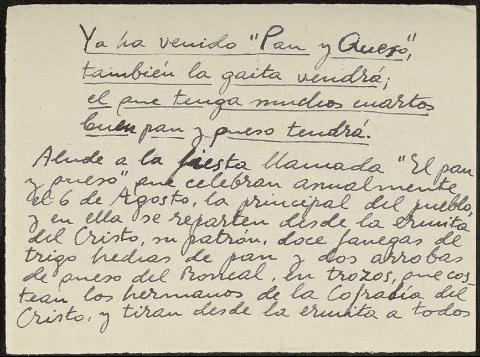 Ya ha venido "Pan y Queso",
también la gaita vendrá;
el que tenga muchos cuartos
buen pan y queso tendrá.
Alude a la fiesta llamada "El pan
y queso" que celebran anualmente
el 6 de Agosto, la principal del pueblo,
y en ella se reparten desde la ermita
del Cristo, su patrón, doce fanegas de
trigo hechas de pan y dos arrobas
de queso del Roncal, en trozos, que cos-
tean los hermanos de la Cofradía del
Cristo, y tiran desde la ermita a todos